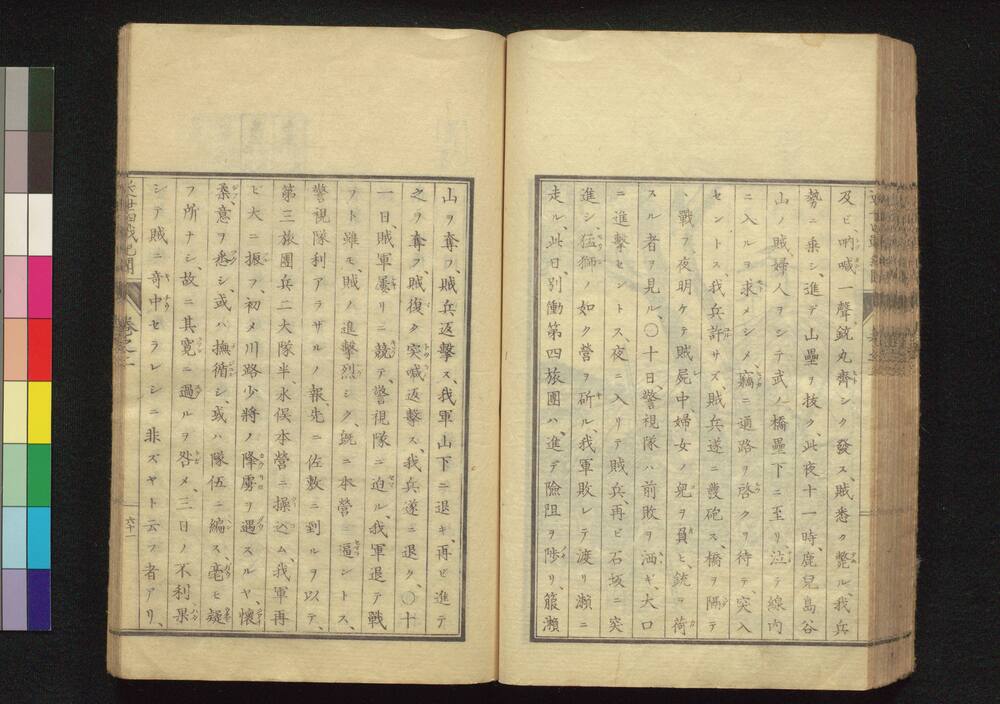 及ビ、吶喊一聲銃丸齊シク發ス、賊悉ク斃ル、我兵
勢ニ乘シ、進デ山壘ヲ拔ク此夜十一時、鹿兒島谷
山ノ賊、婦人ヲシテ武ノ橋壘下ニ至リ泣テ線内
ニ入ルヲ求メシメ竊ニ通路ヲ啓クヲ待テ、突入
セントス、我兵許サズ、賊兵遂ニ發砲ス、橋ヲ隔テ
、戰フ夜明ケテ賊屍中、婦女ノ兒ヲ負ヒ、銃ヲ荷
スル者ヲ見ル、〇十日、警視隊ハ前敗ヲ洒ギ、大口
ニ進擊セントス、夜ニ入リテ賊兵、再ビ石坂ニ突
進シ、猛獅ノ如ク營ヲ斫ル、我軍敗レテ渡リ瀨ニ
走ル、此日、別働第四旅團ハ、進デ險阻ヲ陟リ、箙瀨
山ヲ奪フ、賊兵返擊ス、我軍山下ニ退キ、再ビ進テ
之ヲ奪フ、賊復タ突喊返擊ス、我兵遂ニ退ク、〇十
一日、賊軍屢リニ競テ、警視隊ニ迫ル、我軍退テ戰
フト雖モ、賊ノ進擊烈シク、既ニ本營ニ逼ントス、
警視隊利アラザルノ報、先ニ佐敷ニ到ルヲ以テ、
第三旅團兵二大隊半、水俣本營ニ操込ム、我軍再
ビ大ニ振フ、初メ川路少將ノ降虜ヲ遇スルヤ、懷
柔、意ヲ悉シ、或ハ撫循シ、或ハ隊伍ニ編ス、毫モ疑
フ所ナシ、故ニ其寛ニ過ルヲ咎メ、三日ノ不利果
シテ賊ニ奇中セラレシニ非ズヤト云フ者アリ、
卷之一
六十一